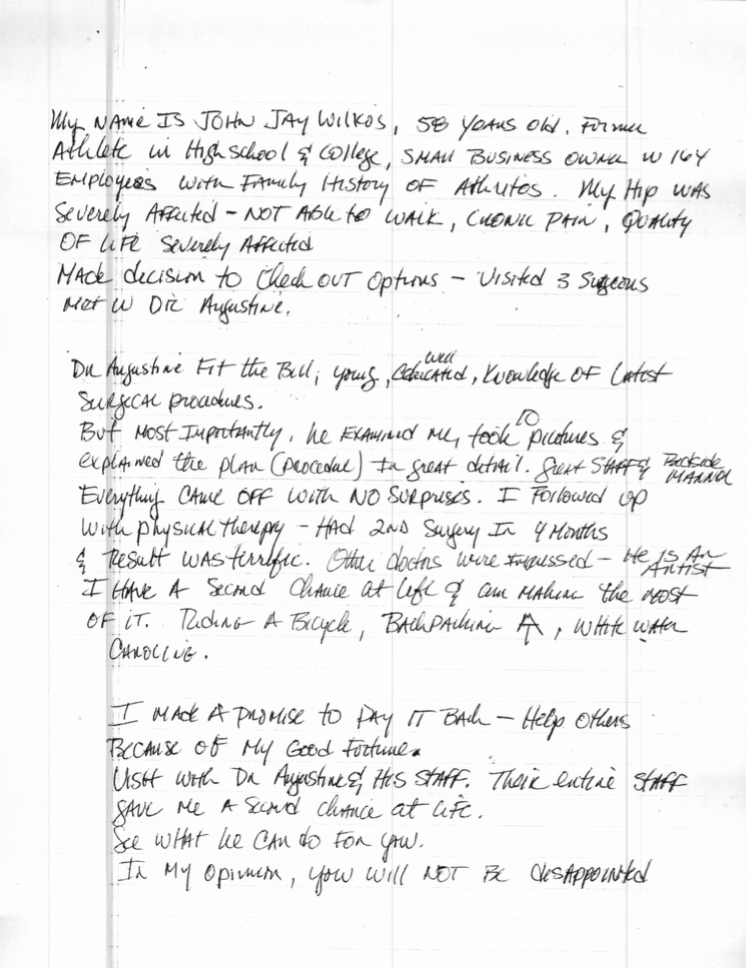 My Name Is John Jay Wilkos, 58 years old. Former
Athlete in High school & College, Small Business owner w 164
Employees with Family History of Athritos. My Hip was
Severely Affected - NOT Able to walk, Cronic pain, Quality
OF LIFE Severely Affected
Made decision to Check out Options - Visited 3 Surgeons
met w Dr. Augustine.
Dr Augustine Fit the Bill, young, well educated, Knowledge of Latest
Surgical procedures.
But Most Importantly, he Examined me, took pictures &
explained the plan (procedure) In great detail. Great Staff & Bedside Manner
Everything came off with no surprises. I Followed up
With physical therapy - Had 2nd Surgery In 4 Months
& Result was terrific. Other doctors were Impressed - He is An Artist
I Have A Second Chance at Life & am making the most
of it. Riding A Bicycle, Backpacking, White water
Canoeing.
I made A promise to Pay IT Back - Help others
Because of My Good Fortune.
Visit with Dr Augustine & His Staff. Their entire Staff
gave me A Second chance at life.
See what he can do for you.
In My Opinion, you will NOT Be disappointed